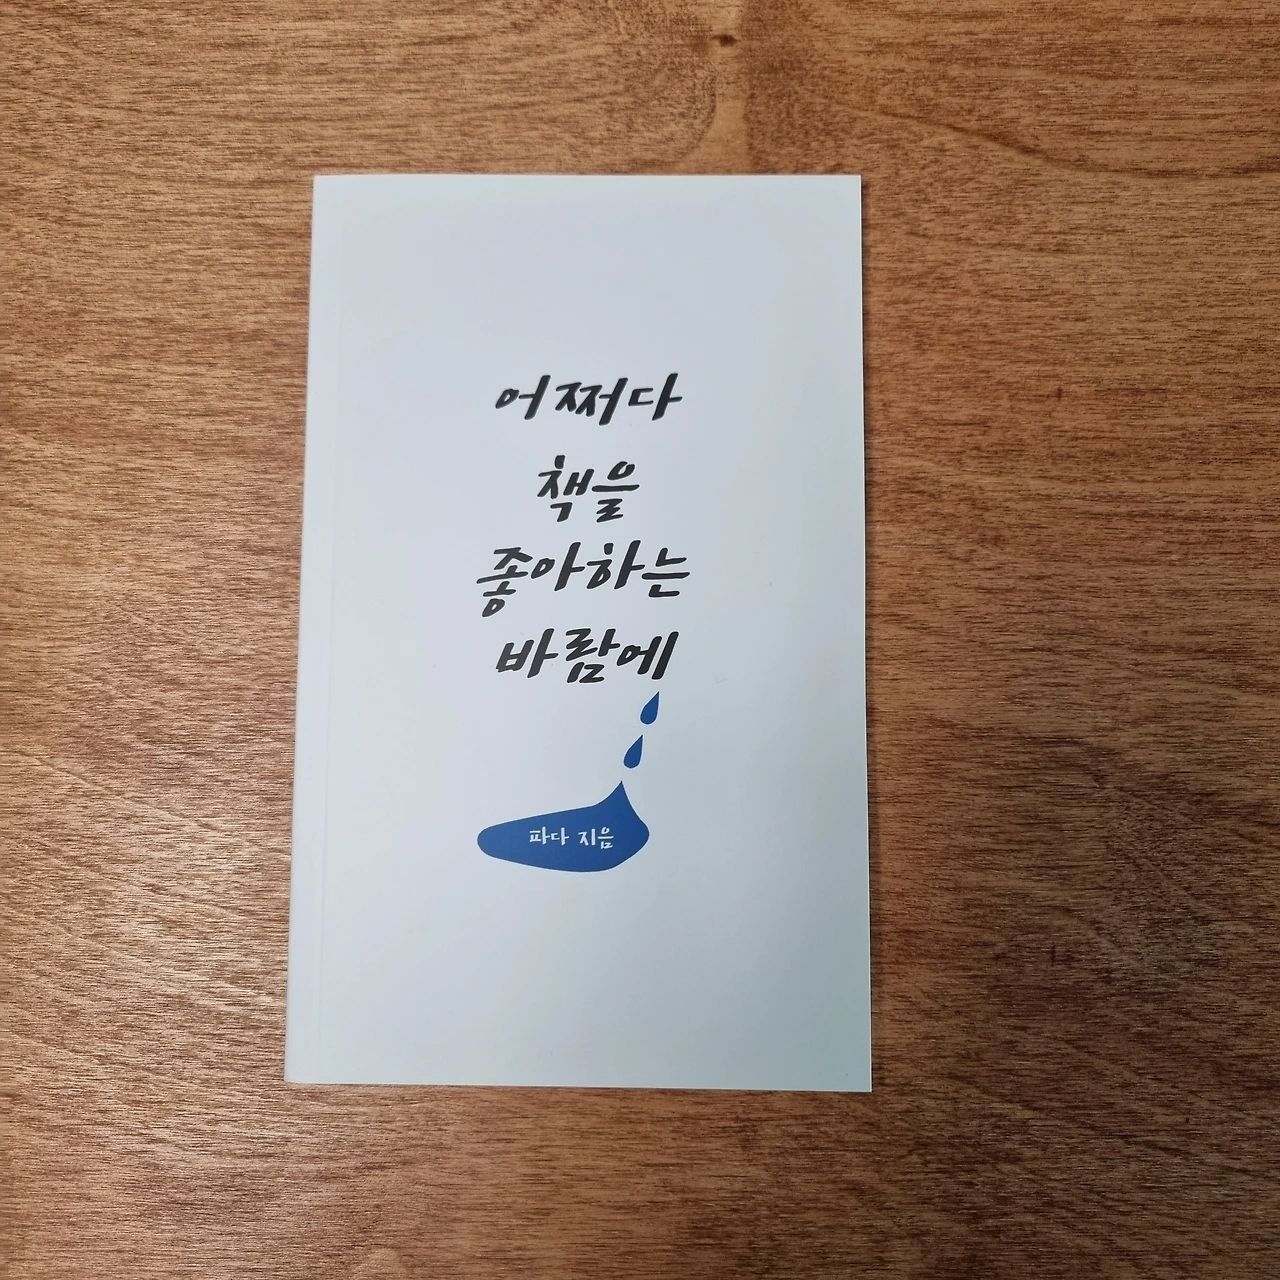 어쩌다
책을
좋아하는
바람에
파다 지음